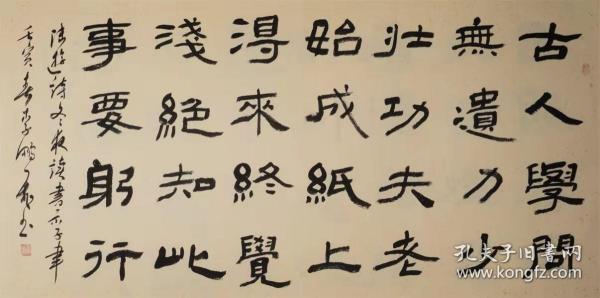 古人學問
無遺力少
壯功夫老
始成紙上
淺絕知此
得來終覺
事要躬行
陸游詩冬夜讀書示子聿
壬寅春李鵬
孔夫子旧书网
www.kongfz.com